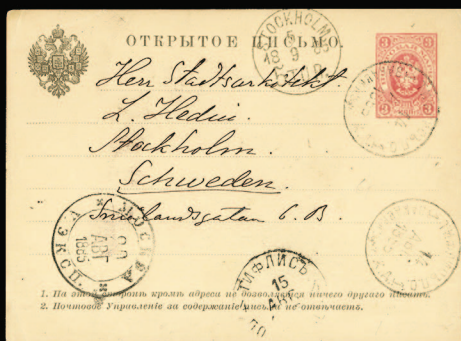 ОТКРЫТОЕ ПИСЬМО.
STOCKHOLM
Herr Stadsarkitekt
L. Hedin.
Stockholm.
Schweden.
Smålandsgatan 6. B.
МОСКВА
АВГ
1885
ЭКСП.
ТИФЛИСЪ
15
АВГ
1. На этой сторонѣ кромѣ адреса не дозволяется ничего другаго писать.
2. Почтовое Управленіе за содержаніе письма не отвѣчаетъ.